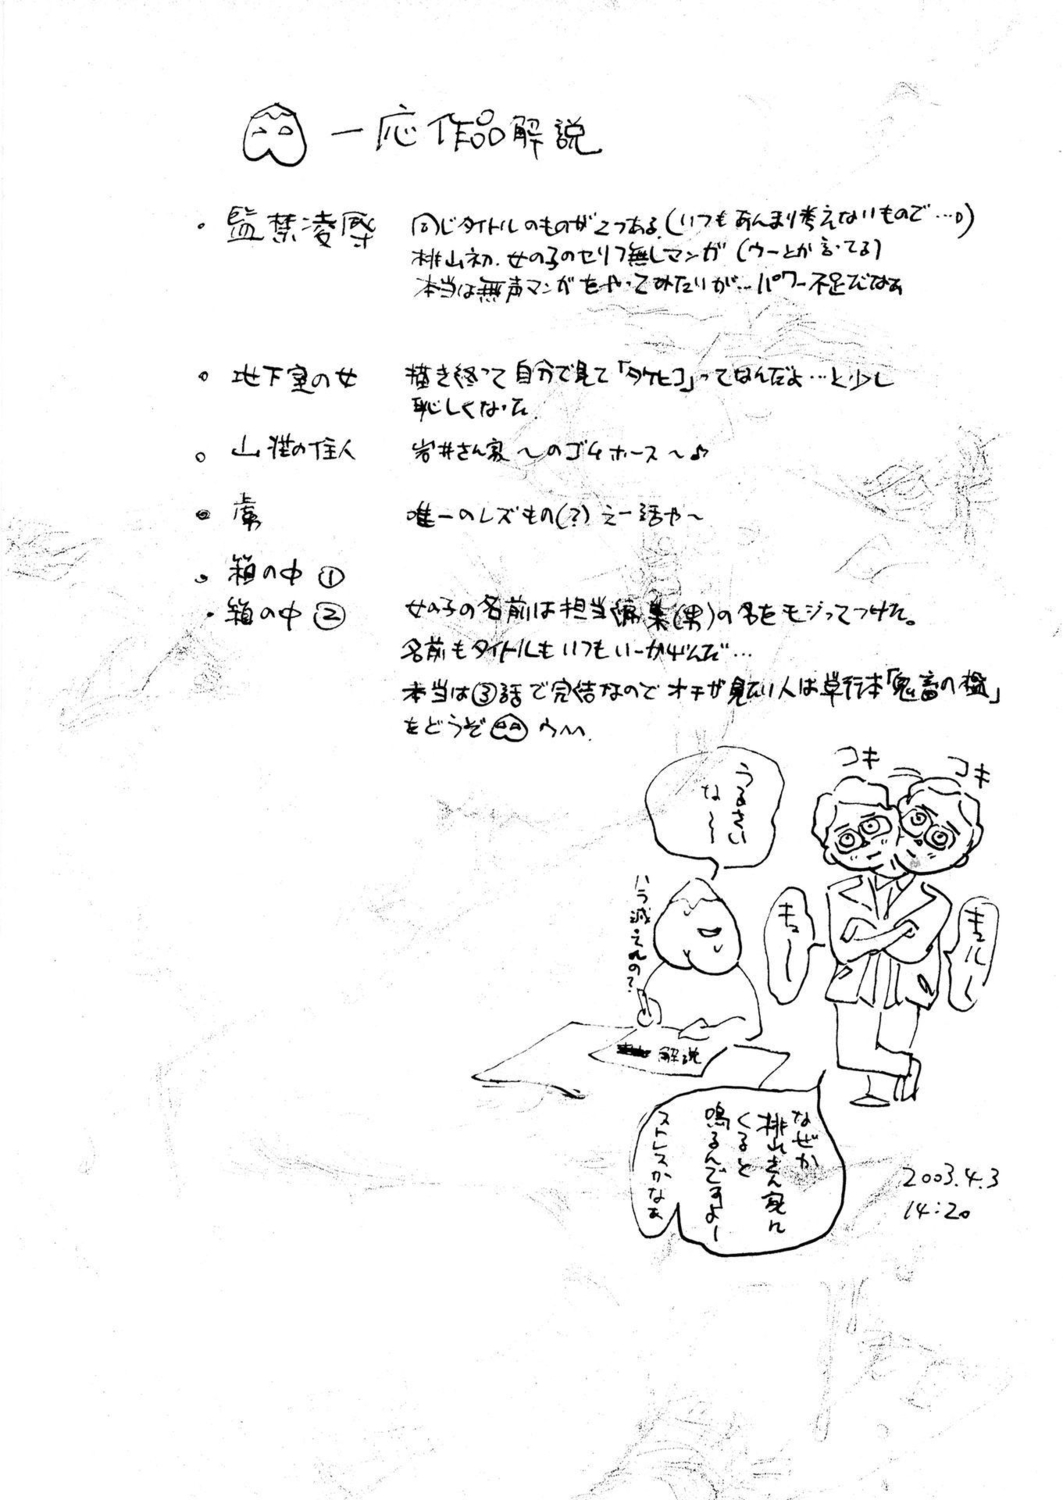 一応作品解説
・監禁凌辱 同じタイトルのものが2つある。(いつもあんまり考えないもので…)
桃山初。女の子のセリフ無しマンガ(ウーとか言ってる)
本当は無声マンガをやってみたいが…パワー不足だなぁ
・地下室の女 描き終って自分で見て「タケヒコ」ってなんだよ…と少し
恥しくなった。
・山荘の住人 岩井さん家〜のゴムホース〜♪
・虜 唯一のレズもの(?)えー話や〜
・箱の中①
・箱の中② 女の子の名前は担当編集(男)の名をモジってつけた。
名前もタイトルもいつもいーかげんだ…
本当は③話で完結なのでオチが見たい人は単行本「鬼畜の檻」
をどうぞ
コキ
コキ
うるさい
な〜〜
ハラ減ってんの?
キュー
キュルー
解説
なぜか
桃山さん家に
くると
鳴るんですよー
ストレスかなぁ
2003.4.3
14:20